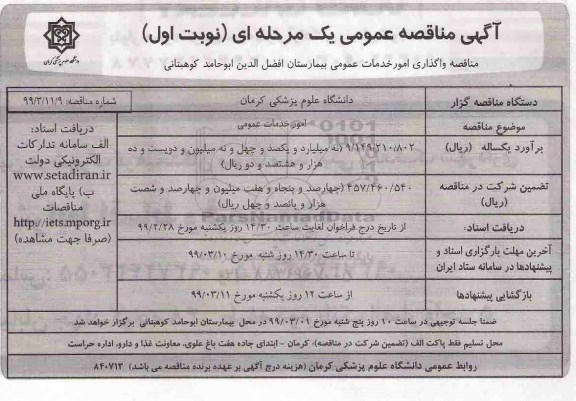 آگهی مناقصه عمومی یک مرحله ای (نوبت اول)
مناقصه واگذاری امورخدمات عمومی بیمارستان افضل الدین ابوحامد کوهبنانی
دستگاه مناقصه گزار
دانشگاه علوم پزشکی کرمان
شماره مناقصه: ۹۹/۳/۱۱/۹
موضوع مناقصه
امور خدمات عمومی
برآورد یکساله (ریال)
۹/۱۴۹/۲۱۰/۸۰۲ (نه میلیارد و یکصد و چهل و نه میلیون و دویست و ده
هزار و هشتصد و دو ریال)
تضمین شرکت در مناقصه
(ریال)
۴۵۷/۴۶۰/۵۴۰ (چهارصد و پنجاه و هفت میلیون و چهارصد و شصت
هزار و پانصد و چهل ریال)
دریافت اسناد:
از تاریخ درج فراخوان لغایت ساعت ۱۴/۳۰ روز یکشنبه مورخ ۹۹/۲/۲۸
آخرین مهلت بارگزاری اسناد و
پیشنهادها در سامانه ستاد ایران
تا ساعت ۱۴/۳۰ روز شنبه مورخ ۹۹/۰۳/۱۰
بازگشایی پیشنهادها
از ساعت ۱۲ روز یکشنبه مورخ ۹۹/۰۳/۱۱
دریافت اسناد:
الف سامانه تدارکات
الکترونیکی دولت
www.setadiran.ir
ب) پایگاه ملی
مناقصات
http://iets.mporg.ir
(صرفا جهت مشاهده)
ضمنا جلسه توجیهی در ساعت ۱۰ روز پنج شنبه مورخ ۹۹/۰۳/۰۱ در محل بیمارستان ابوحامد کوهبنانی برگزار خواهد شد
محل تسلیم فقط پاکت الف (تضمین شرکت در مناقصه): کرمان - ابتدای جاده هفت باغ علوی، معاونت غذا و دارو، اداره حراست
روابط عمومی دانشگاه علوم پزشکی کرمان (هزینه درج آگهی بر عهده برنده مناقصه می باشد) ۸۴۰۷۱۳